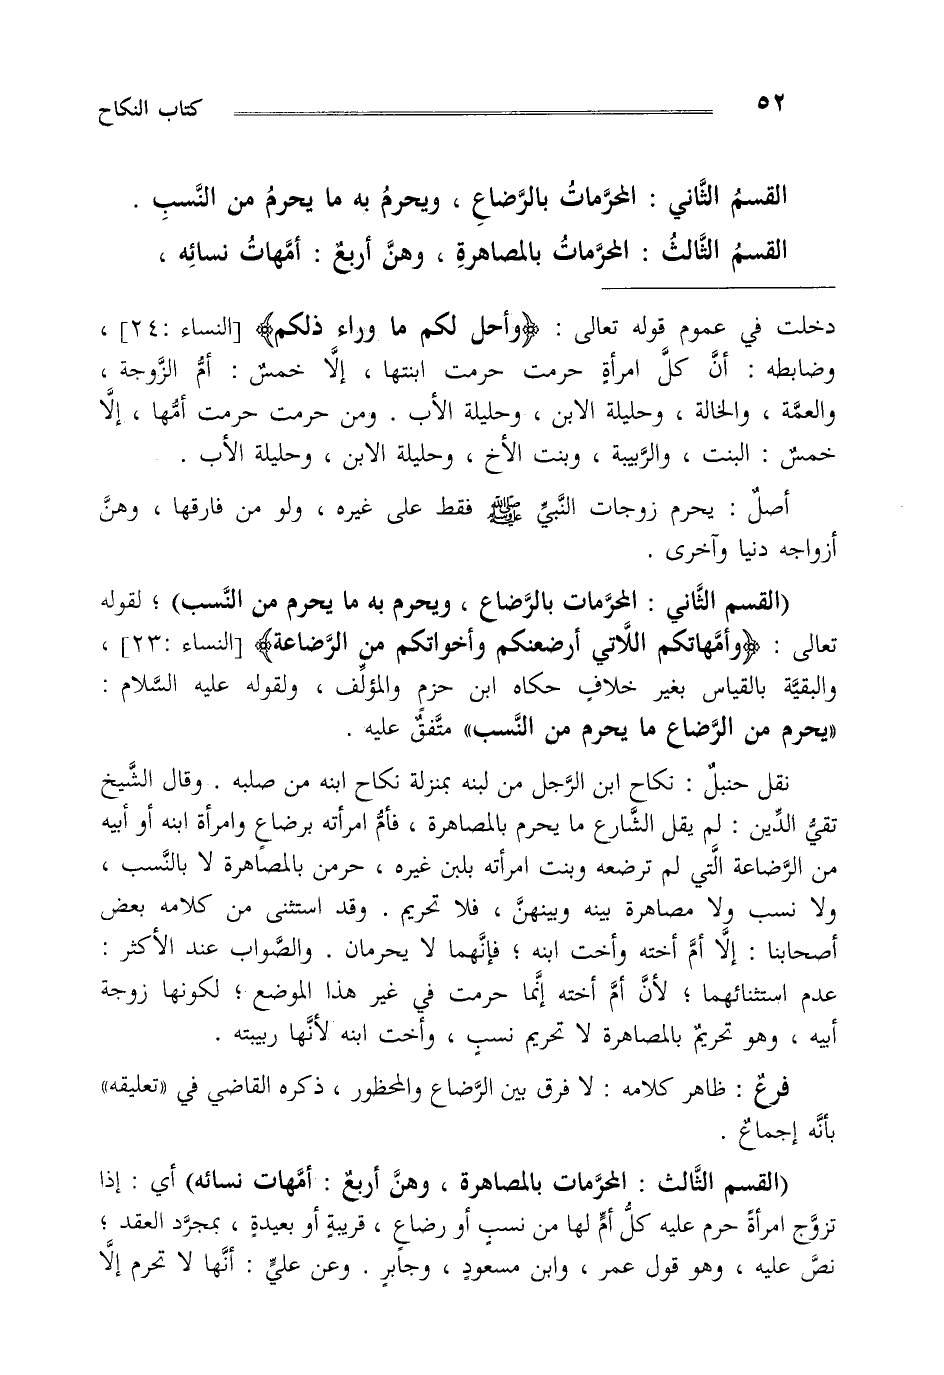 ٥٢
كتاب النكاح
القسمُ الثَّاني : المحرَّماتُ بالرَّضاعِ ، ويحرمُ به ما يحرمُ من النَّسبِ .
القسمُ الثَّالثُ : المحرَّماتُ بالمصاهرةِ ، وهنَّ أربعٌ : أمَّهاتُ نسائِه ،
دخلت في عموم قوله تعالى : ﴿وأحل لكم ما وراء ذلكم﴾ [النساء :٢٤] ،
وضابطه : أنَّ كلَّ امرأةٍ حرمت حرمت ابنتها ، إلَّا خمسٌ : أمُّ الزَّوجة ،
والعمَّة ، والخالة ، وحليلة الابن ، وحليلة الأب . ومن حرمت حرمت أمُّها ، إلَّا
خمسٌ : البنت ، والرَّبيبة ، وبنت الأخ ، وحليلة الابن ، وحليلة الأب .
أصلٌ : يحرم زوجات النَّبيِّ ﷺ فقط على غيره ، ولو من فارقها ، وهنَّ
أزواجه دنيا وآخرى .
(القسم الثَّاني : المحرَّمات بالرَّضاع ، ويحرم به ما يحرم من النَّسب) ؛ لقوله
تعالى : ﴿وأمَّهاتكم اللَّاتي أرضعنكم وأخواتكم من الرَّضاعة﴾ [النساء :٢٣] ،
والبقيَّة بالقياس بغير خلافٍ حكاه ابن حزمٍ والمؤلِّف ، ولقوله عليه السَّلام :
«يحرم من الرَّضاع ما يحرم من النَّسب» متَّفقٌ عليه .
نقل حنبلٌ : نكاح ابن الرَّجل من لبنه بمنزلة نكاح ابنه من صلبه . وقال الشَّيخ
تقيُّ الدِّين : لم يقل الشَّارع ما يحرم بالمصاهرة ، فأمُّ امرأته برضاعٍ وامرأة ابنه أو أبيه
من الرَّضاعة الَّتي لم ترضعه وبنت امرأته بلبن غيره ، حرمن بالمصاهرة لا بالنَّسب ،
ولا نسب ولا مصاهرة بينه وبينهنَّ ، فلا تحريم . وقد استثنى من كلامه بعض
أصحابنا : إلَّا أمَّ أخته وأخت ابنه ؛ فإنَّهما لا يحرمان . والصَّواب عند الأكثر :
عدم استثنائهما ؛ لأنَّ أمَّ أخته إنَّما حرمت في غير هذا الموضع ؛ لكونها زوجة
أبيه ، وهو تحريمٌ بالمصاهرة لا تحريم نسبٍ ، وأخت ابنه لأنَّها ربيبته .
فرعٌ : ظاهر كلامه : لا فرق بين الرَّضاع والمحظور ، ذكره القاضي في «تعليقه»
بأنَّه إجماعٌ .
(القسم الثَّالث : المحرَّمات بالمصاهرة ، وهنَّ أربعٌ : أمَّهات نسائه) أي : إذا
تزوَّج امرأةً حرم عليه كلُّ أمٍّ لها من نسبٍ أو رضاعٍ ، قريبةٍ أو بعيدةٍ ، بمجرَّد العقد ؛
نصَّ عليه ، وهو قول عمر ، وابن مسعودٍ ، وجابرٍ . وعن عليٍّ : أنَّها لا تحرم إلَّا